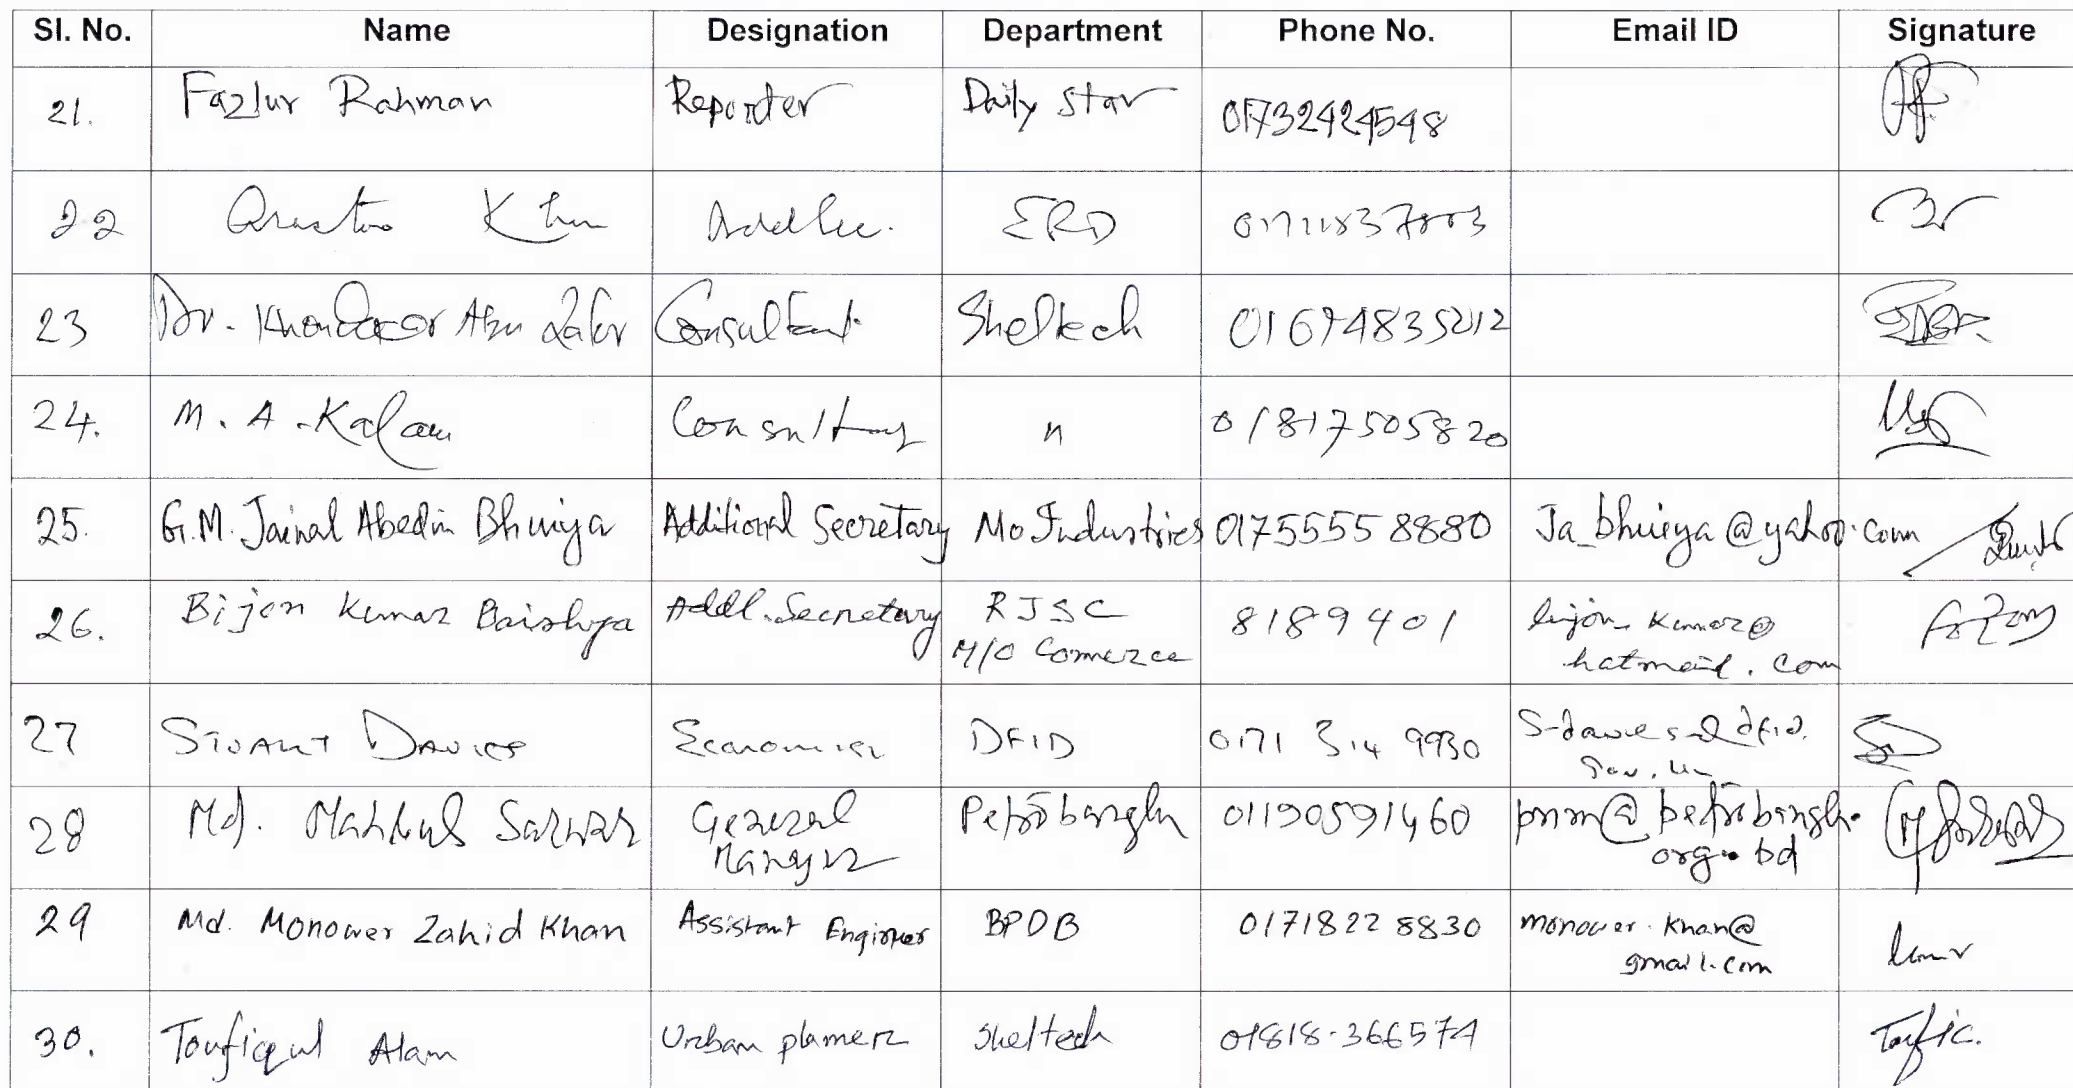 Sl. No. Name Designation Department Phone No. Email ID Signature
21. Fazlur Rahman Reporter Daily Star 01732424548
22 ERD
23 Dr. Khondaker Abu Zafor Consultant Sheltech 01674835212
24. M. A. Kalam Consultant " 01817505820
25. G.M. Jainal Abedin Bhuiya Additional Secretary Mo Industries 01755558880 Ja_bhuiya@yahoo.com
26. Bijon Kumar Baishya Addl. Secretary RJSC 8189401 bijon_kumar@
M/O Comerce hatmail.com
27 Stuart Davies Economist DFID 0171 314 9930 S-davies@dfid.
gov.uk
28 Md. Mahbub Sarwar General Petrobangla 01190591460 pmm@petrobangla.
Manager org.bd
29 Md. Monower Zahid Khan Assistant Engineer BPDB 01718228830 monower.khan@
gmail.com
30. Toufiqul Alam Urban planner Sheltech 01818-366574 Toufic.